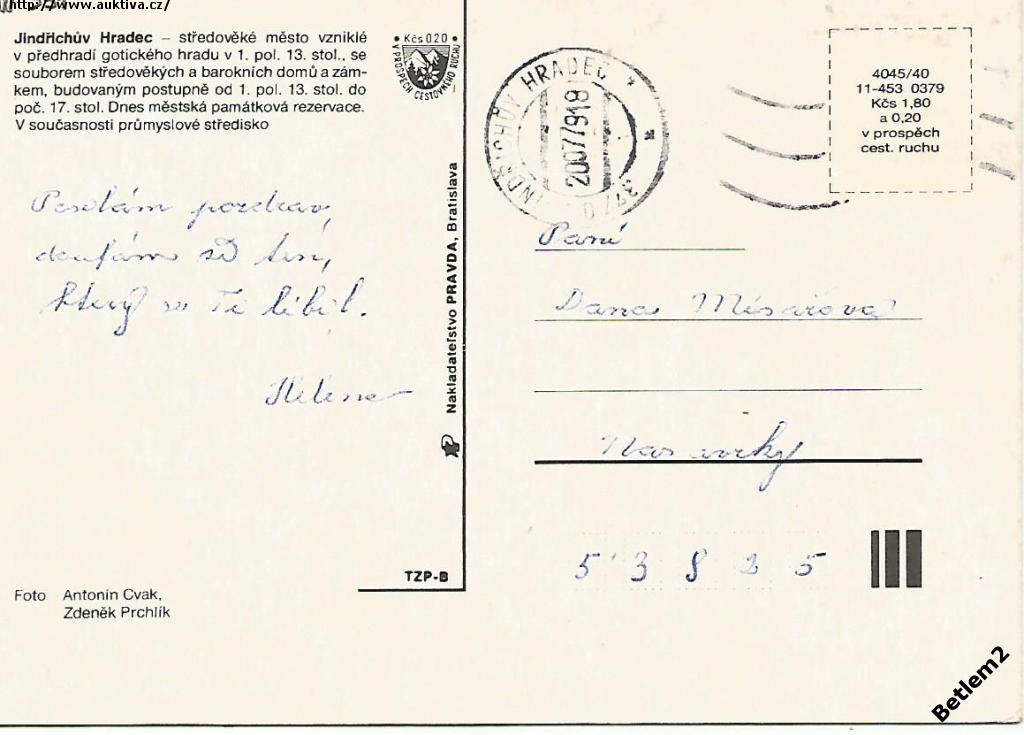 http://www.auktiva.cz/
Jindřichův Hradec – středověké město vzniklé
v předhradí gotického hradu v 1. pol. 13. stol., se
souborem středověkých a barokních domů a zám-
kem, budovaným postupně od 1. pol. 13. stol. do
poč. 17. stol. Dnes městská památková rezervace.
V současnosti průmyslové středisko
Kčs 0.20
V PROSPĚCH CESTOVNÍHO RUCHU
JINDŘICHŮV HRADEC
20077918
377 0
4045/40
11-453 0379
Kčs 1,80
a 0,20
v prospěch
cest. ruchu
Posílám pozdrav,
doufám že ten,
který se Ti líbil.
Helena
Nakladateľstvo PRAVDA, Bratislava
Paní
Dana Mísařová
Nasavrky
53825
TZP-B
Foto Antonín Cvak,
Zdeněk Prchlík
Betlem2